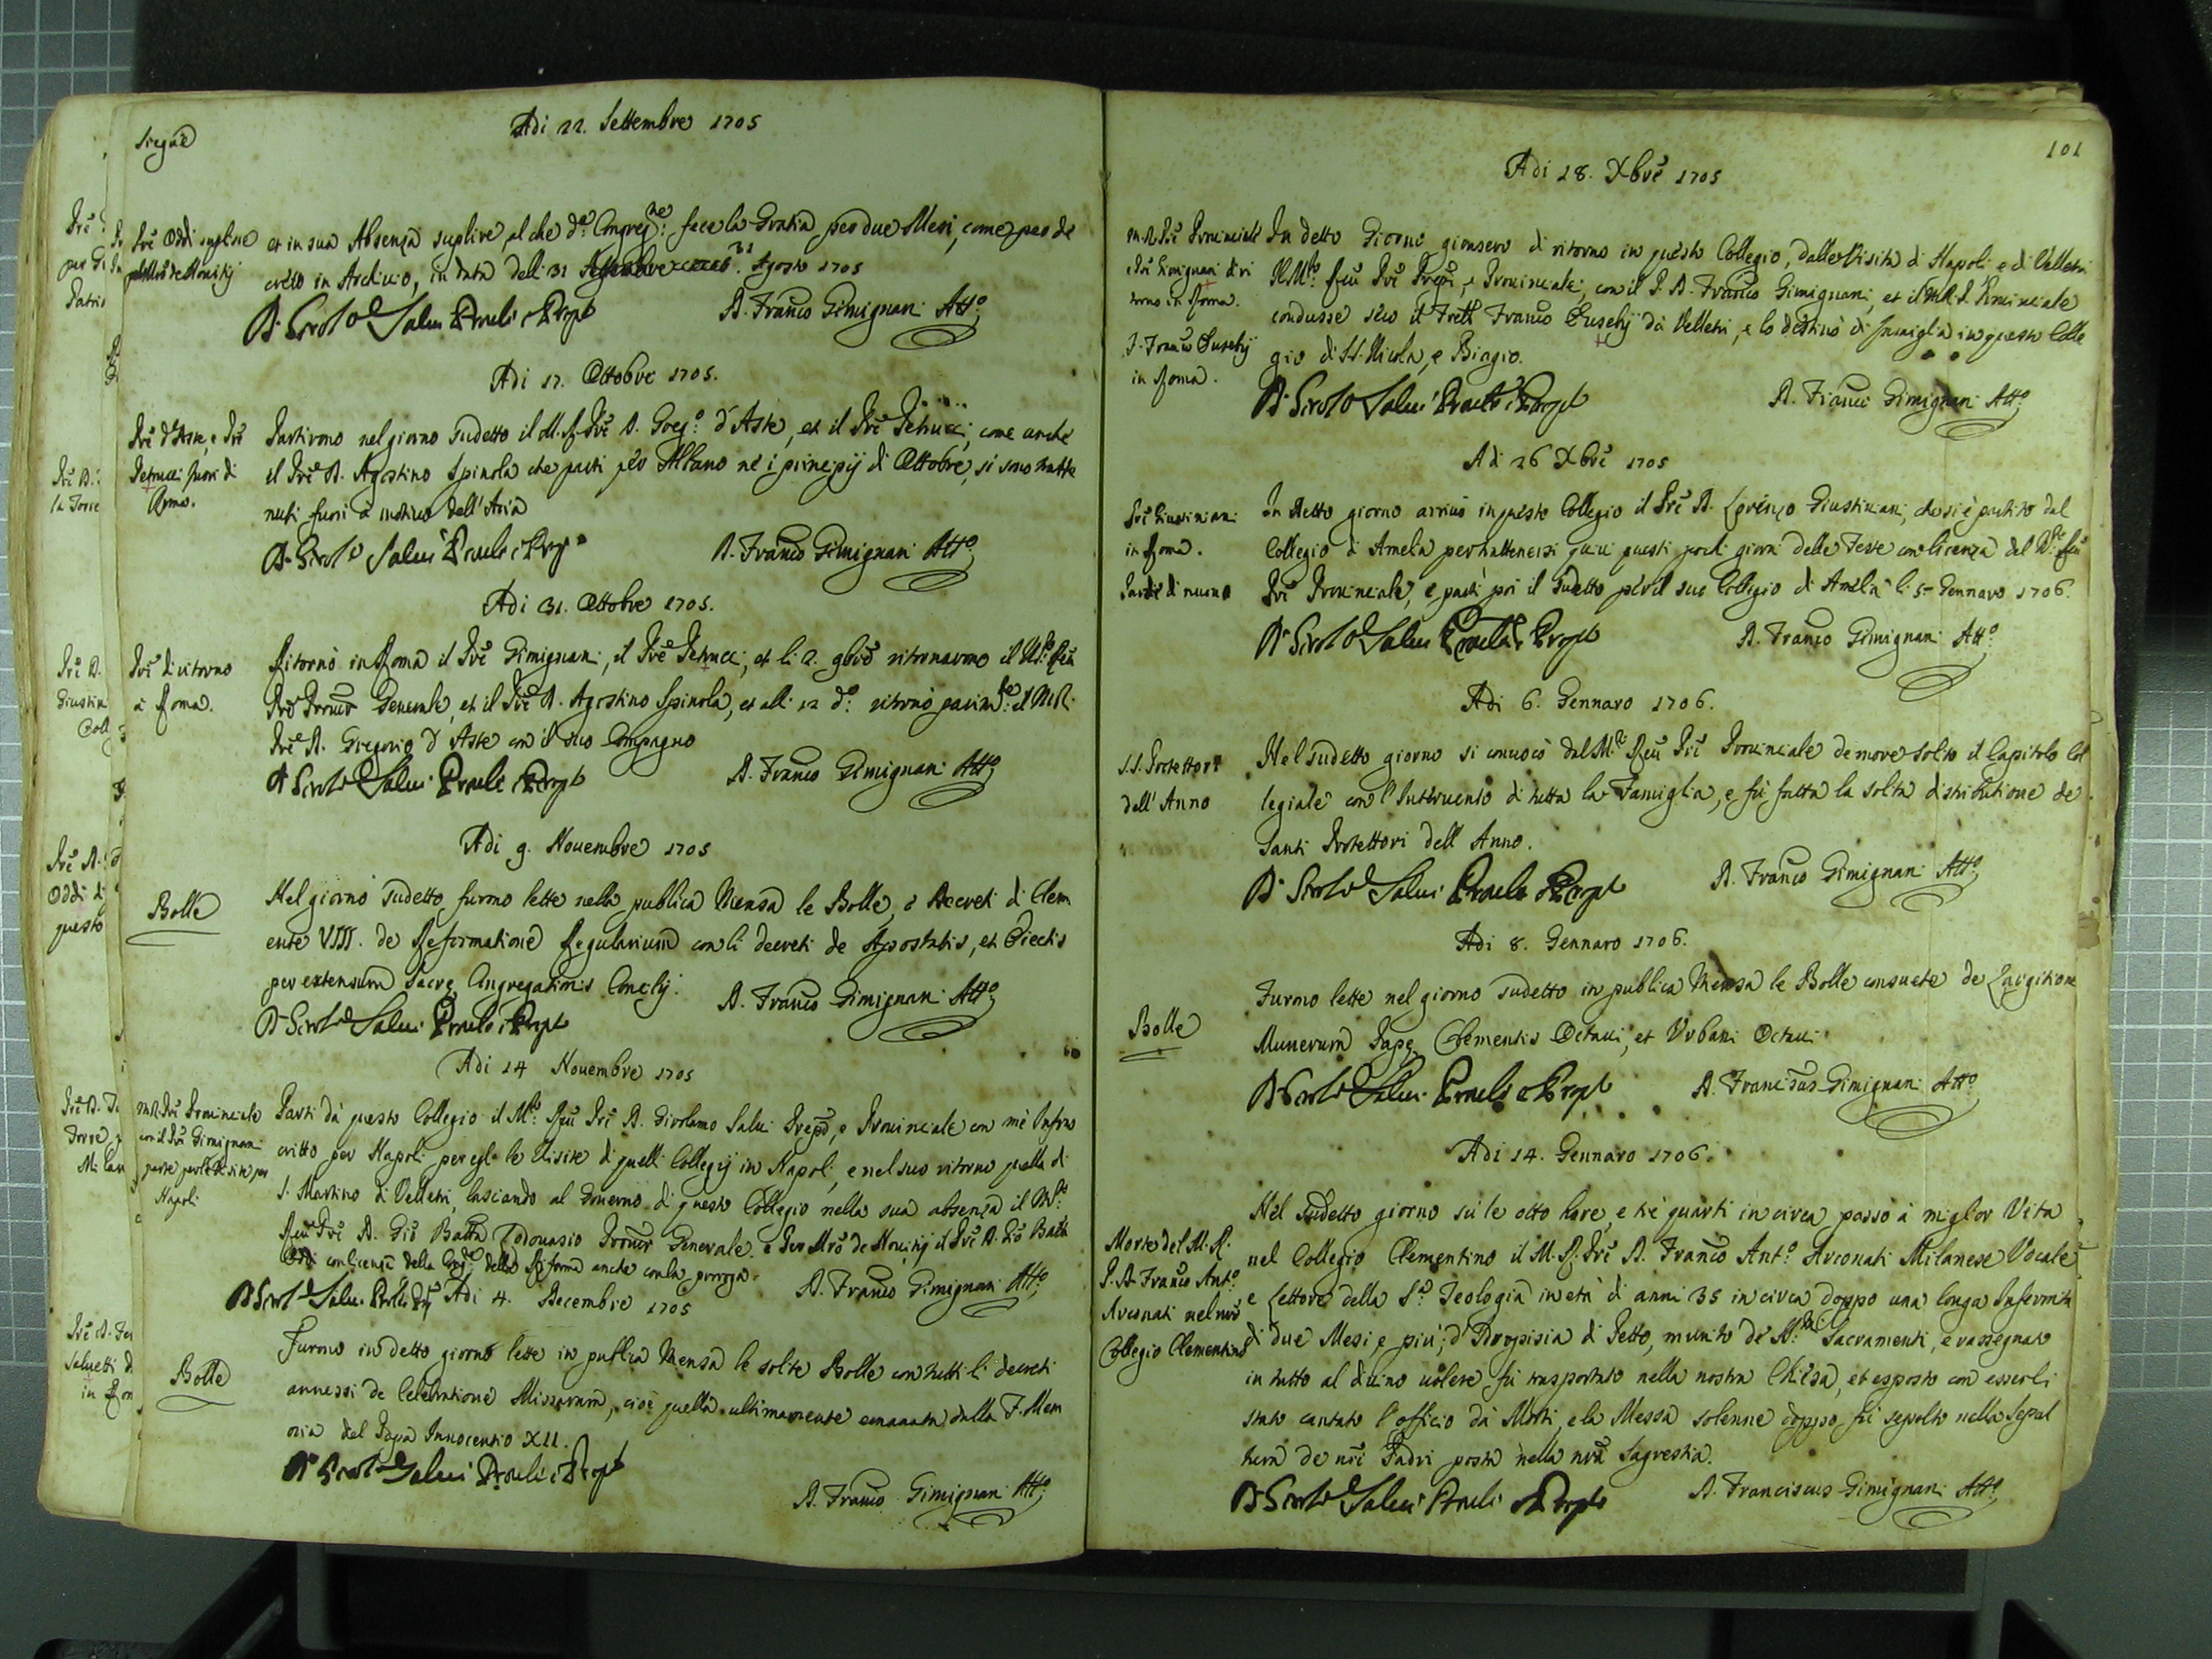 Siegue
Adi 22. Settembre 1705
Pre Oddi suplisce
et in sua Absenza suplire, al che da. Congregne. fece la Gratia per due Mesi, come per de
creto in Archivio, in data delli 31 Agosto 1705
D. Girolo. Salui Proule e Prepto
D. Franco Gimignani Atto.
Adi 17. Ottobre 1705.
Pre d'Aste, e Pre
Petrucci fuori di
Roma.
Partirono nel giorno sudetto il M. R. Pre D. Greg.o d'Aste, et il Pre Petrucci, come anche
il Pre D. Agostino Spinola che parti per Albano nè i principij di Ottobre, si sono tratte
nuti fuori à motivo dell'Aria
D. Girolo Salui Proule e Prepo
D. Franco Gimignani Atto.
Adi 31. Ottobre 1705.
Pri di ritorno
à Roma.
Ritornò in Roma il Pre Gimignani, il Pre Petrucci, et li 2. 9bre ritornarono il M.to Reu
Pre Procur Generale, et il Pre D. Agostino Spinola, et alli 12 do. ritornò parimte. il M.R.
Pre D. Gregorio d'Aste con il suo Compagno
D Girolo Salui Proule e Prepto
D. Franco Gimignani Atto.
Adi 9. Nouembre 1705
Bolle
Nel giorno sudetto furno lette nella publica Mensa le Bolle, e Decreti di Clem
ente VIII. de Reformatione Regularium con li decreti de Apostatis, et Eiectis
per extensum Sacrę Congregationis Concilij.
D. Franco Gimignani Atto.
D Girolo Salui Proule e Prepto
Adi 14 Nouembre 1705
M.R. Pre Prouinciale
con il Pre Gimignani
parte per le Visite per
Napoli
Parti dà questo Collegio il M.to Reu Pre D. Girolamo Salui Prepto, e Prouinciale con mè Infras
critto per Napoli per le Visite di quelli Collegij in Napoli, e nel suo ritorno quella di
S. Martino di Velletri, lasciando al Gouerno di questo Collegio nella sua absenza il M.to
Reu Pre D. Gio Batta Lodouasio Procur Generale. e per Mro de Nouitij il Pre D. Gio Batta
Oddi con licenza della Congne della Riforma anche con la proroga.
D. Franco Gimignani Atto.
D Girolo Salui Proule Prepto
Adi 4. Decembre 1705
Bolle
Furno in detto giorno lette in publica Mensa le solite Bolle con tutti li decreti
annessi de Celebratione Missarum, cioè quella ultimamente emanata dalla F. Mem
oria del Papa Innocentio XII.
D Girolo Salui Proule e Prepto
D. Franco Gimignani Atto.
101
Adi 18. Xbre 1705
M.R. Pre Prouinciale
e Pre Gimignani di ri
torno in Roma.
P. Franco Eusebij
in Roma.
In detto Giorno gionsero di ritorno in questo Collegio, dalle Visita di Napoli e di Velletri
Il M.to Reu Pre Prepto, e Prouinciale, con il P. D. Franco Gimignani, et il M.R.P. Prouinciale
condusse seco il Fratt Franco Eusebij dà Velletri, e lo destinò di famiglia in questo Colle
gio di SS. Nicola, e Biagio.
D. Girolo Salui Proule e Prepto
D. Franco Gimignani Atto.
Adi 26 Xbre 1705
Pre Giustiniani
in Roma.
Parte di nuouo
In detto giorno arriuò in questo Collegio il Pre D. Lorenzo Giustiniani, che si è partito dal
Collegio di Amelia per trattenersi quiui questi pochi giorni delle Feste con licenza del M.to Reu
Pre Prouinciale, e parti poi il sudetto per il suo Collegio di Amelia li 5 Gennaro 1706.
D. Girolo Salui Proule e Prepto
D. Franco Gimignani Atto.
Adi 6. Gennaro 1706.
S.S. Protettori
dell'Anno
Nel sudetto giorno si conuocò dal M.to Reu Pre Prouinciale de more solito il Capitolo Col
legiale con l'Interuento di tutta la Famiglia, e fù fatta la solita distributione de
Santi Protettori dell'Anno.
D. Girolo Salui Proule e Prepto
D. Franco Gimignani Atto.
Adi 8. Gennaro 1706.
Bolle
Furno lette nel giorno sudetto in publica Mensa le Bolle consuete de Largitione
Munerum Papę Clementis Octaui, et Vrbani Octaui
D Girolo Salui Proule e Prepto
D. Franciscus Gimignani Atto.
Adi 14. Gennaro 1706.
Morte del M. R.
P. D. Franco Anto.
Arconati nel nro
Collegio Clementino
Nel sudetto giorno sù le otto hore, e trè quarti in circa passò à miglior Vita
nel Collegio Clementino il M. R. Pre D. Franco Anto. Arconati Milanese Vocale
e Lettore della Sa. Teologia in età di anni 35 in circa doppo una longa Infermità
di due Mesi, e più, d'Idropisia di Petto, munito dè SS.mi Sacramenti, e rassegnato
in tutto al diuino uolere, fù trasportato nella nostra Chiesa, et esposto con esserli
stato cantato l'officio dà Morti, e la Messa solenne doppo, fù sepolto nella Sepol
tura de nri Padri posta nella nra Sagrestia.
D Girolo Salui Proule e Prepto
D. Franciscus Gimignani Atto.